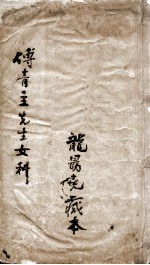 龍藏本
傅青主先生女科